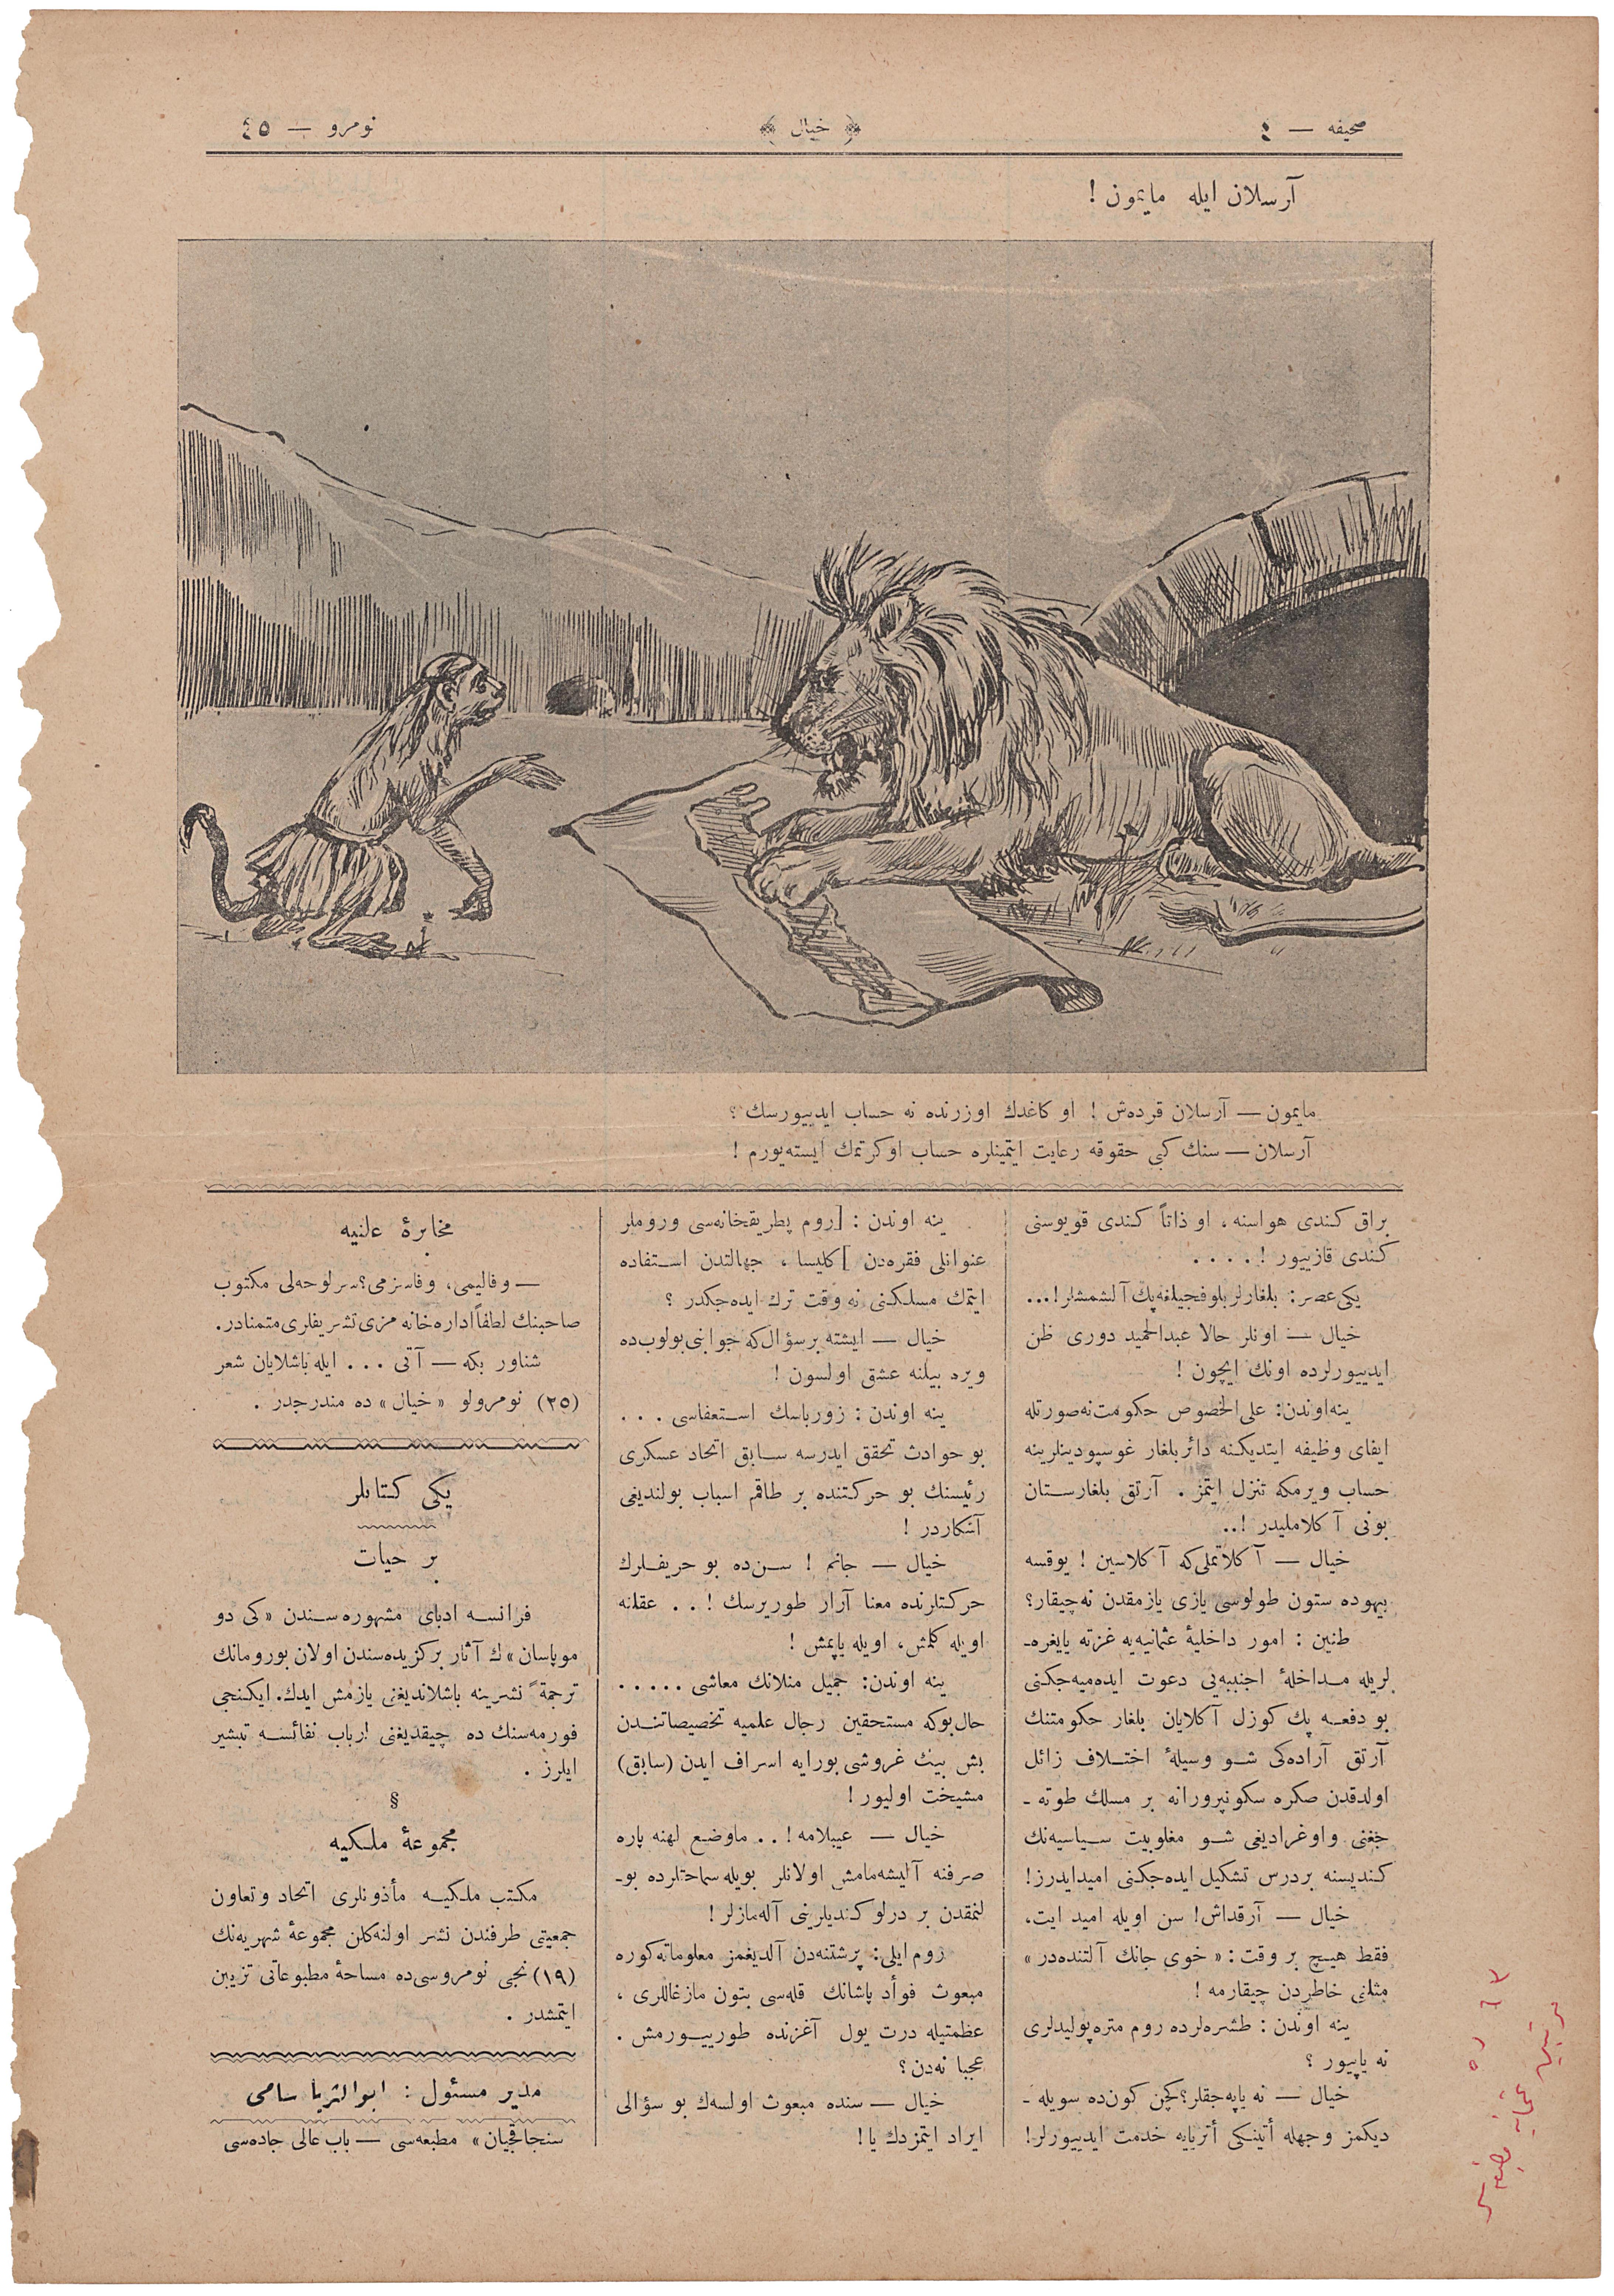 صحیفه — ٤
﴿ خیال ﴾
نومرو — ٤٥
آرسلان ایله مایمون !
مایمون — آرسلان قرده‌ش ! او کاغدك اوزرنده نه حساب ایدییورسك ؟
آرسلان — سنك کبی حقوقه رعایت ایتمینلره حساب اوکرتمك ایسته‌یورم !
براق کندی هواسنه ، او ذاتاً کندی قویوسنی
کندی قازییور ! . . . .
یکی عصر : بلغارلر بلوفجیلغه پك آلشمشلر ! ...
خیال — اونلر حالا عبدالحمید دوری ظن
ایدییورلرده اونك ایچون !
ینه اوندن : علی الخصوص حکومت نه صورتله
ایفای وظیفه ایتدیکنه دائر بلغار غوسپودینلرینه
حساب ویرمکه تنزل ایتمز . آرتق بلغارستان
بونی آکلاملیدر ! ..
خیال — آکلاتملی که آکلاسین ! یوقسه
بیهوده ستون طولوسی یازی یازمقدن نه چیقار ؟
طنین : امور داخلیهٔ عثمانیه‌یه غزته یایغره‌ـ
لریله مداخلهٔ اجنبیه‌یی دعوت ایده‌میه‌جکنی
بو دفعه پك کوزل آکلایان بلغار حکومتنك
آرتق آراده‌کی شو وسیلهٔ اختلاف زائل
اولدقدن صکره سکونپرورانه بر مسلك طوته ـ
جغنی واوغرادیغی شو مغلوبیت سیاسیه‌نك
کندیسنه بردرس تشکیل ایده‌جکنی امیدایدرز !
خیال — آرقداش ! سن اویله امید ایت ،
فقط هیچ بر وقت : « خوی جانك آلتنده‌در »
مثلنی خاطردن چیقارمه !
ینه اوندن : طشره‌لرده روم متره‌پولیدلری
نه یاپییور ؟
خیال — نه یاپه‌جقلر ؟ کچن کون ده سویله ـ
دیکمز وجهله أتینکی أتریایه خدمت ایدییورلر !
ینه اوندن : [ روم پطریقخانه‌سی وروملر
عنوانلی فقره‌دن ] کلیسا ، جهالتدن استفاده
ایتمك مسلکنی نه وقت ترك ایده‌جکدر ؟
خیال — ایشته بر سؤال که جوابنی بولوب ده
ویره بیلنه عشق اولسون !
ینه اوندن : زورباسك استعفاسی . . .
بو حوادث تحقق ایدرسه سابق اتحاد عسکری
رئیسنك بو حرکتنده بر طاقم اسباب بولندیغی
آشکاردر !
خیال — جانم ! سن ده بو حریفلرك
حرکتلرنده معنا آرار طوریرسك ! . . عقلنه
اویله کلمش ، اویله یاپمش !
ینه اوندن : جمیل منلانك معاشی . . . . .
حال بوکه مستحقین رجال علمیه تخصیصاتندن
بش بیك غروشی بورایه اسراف ایدن (سابق)
مشیخت اولیور !
خیال — عیبلامه ! . . ماوضع لهنه پاره
صرفنه آلیشه‌مامش اولانلر بویله سماحتلرده بوـ
لنمقدن بر درلو کندیلرینی آله‌مازلر !
روم ایلی : پرشتنه‌دن آلدیغمز معلوماته کوره
مبعوث فوأد پاشانك قله‌سی بتون مازغاللری ،
عظمتیله درت یول آغزنده طورییورمش .
عجبا نه‌دن ؟
خیال — سنده مبعوث اولسه‌ك بو سؤالی
ایراد ایتمزدك یا !
مخابرهٔ علنیه
— وفالیمی ، وفاسزمی ؟ سرلوحه‌لی مکتوب
صاحبنك لطفاً اداره خانه مزی تشریفلری متمنادر .
شناور بکه — آتی . . . ایله باشلایان شعر
(٢٥) نومرولو « خیال » ده مندرجدر .
یکی کتابلر
بر حیات
فرانسه ادبای مشهوره سندن « کی دو
موپاسان » ك آثار برکزیده‌سندن اولان بورومانك
ترجمةً نشرینه باشلاندیغنی یازمش ایدك . ایکنجی
فورمه‌سنك ده چیقدیغنی ارباب نفائسه تبشیر
ایلرز .
§
مجموعهٔ ملکیه
مکتب ملکیه مأذونلری اتحاد وتعاون
جمعیتی طرفندن نشر اولنه‌کلن مجموعهٔ شهریه‌نك
(١٩) نجی نومروسی ده مساحهٔ مطبوعاتی تزیین
ایتمشدر .
مدیر مسئول : ابوالثریا سامی
سنجاقجیان » مطبعه‌سی — باب عالی جاده‌سی